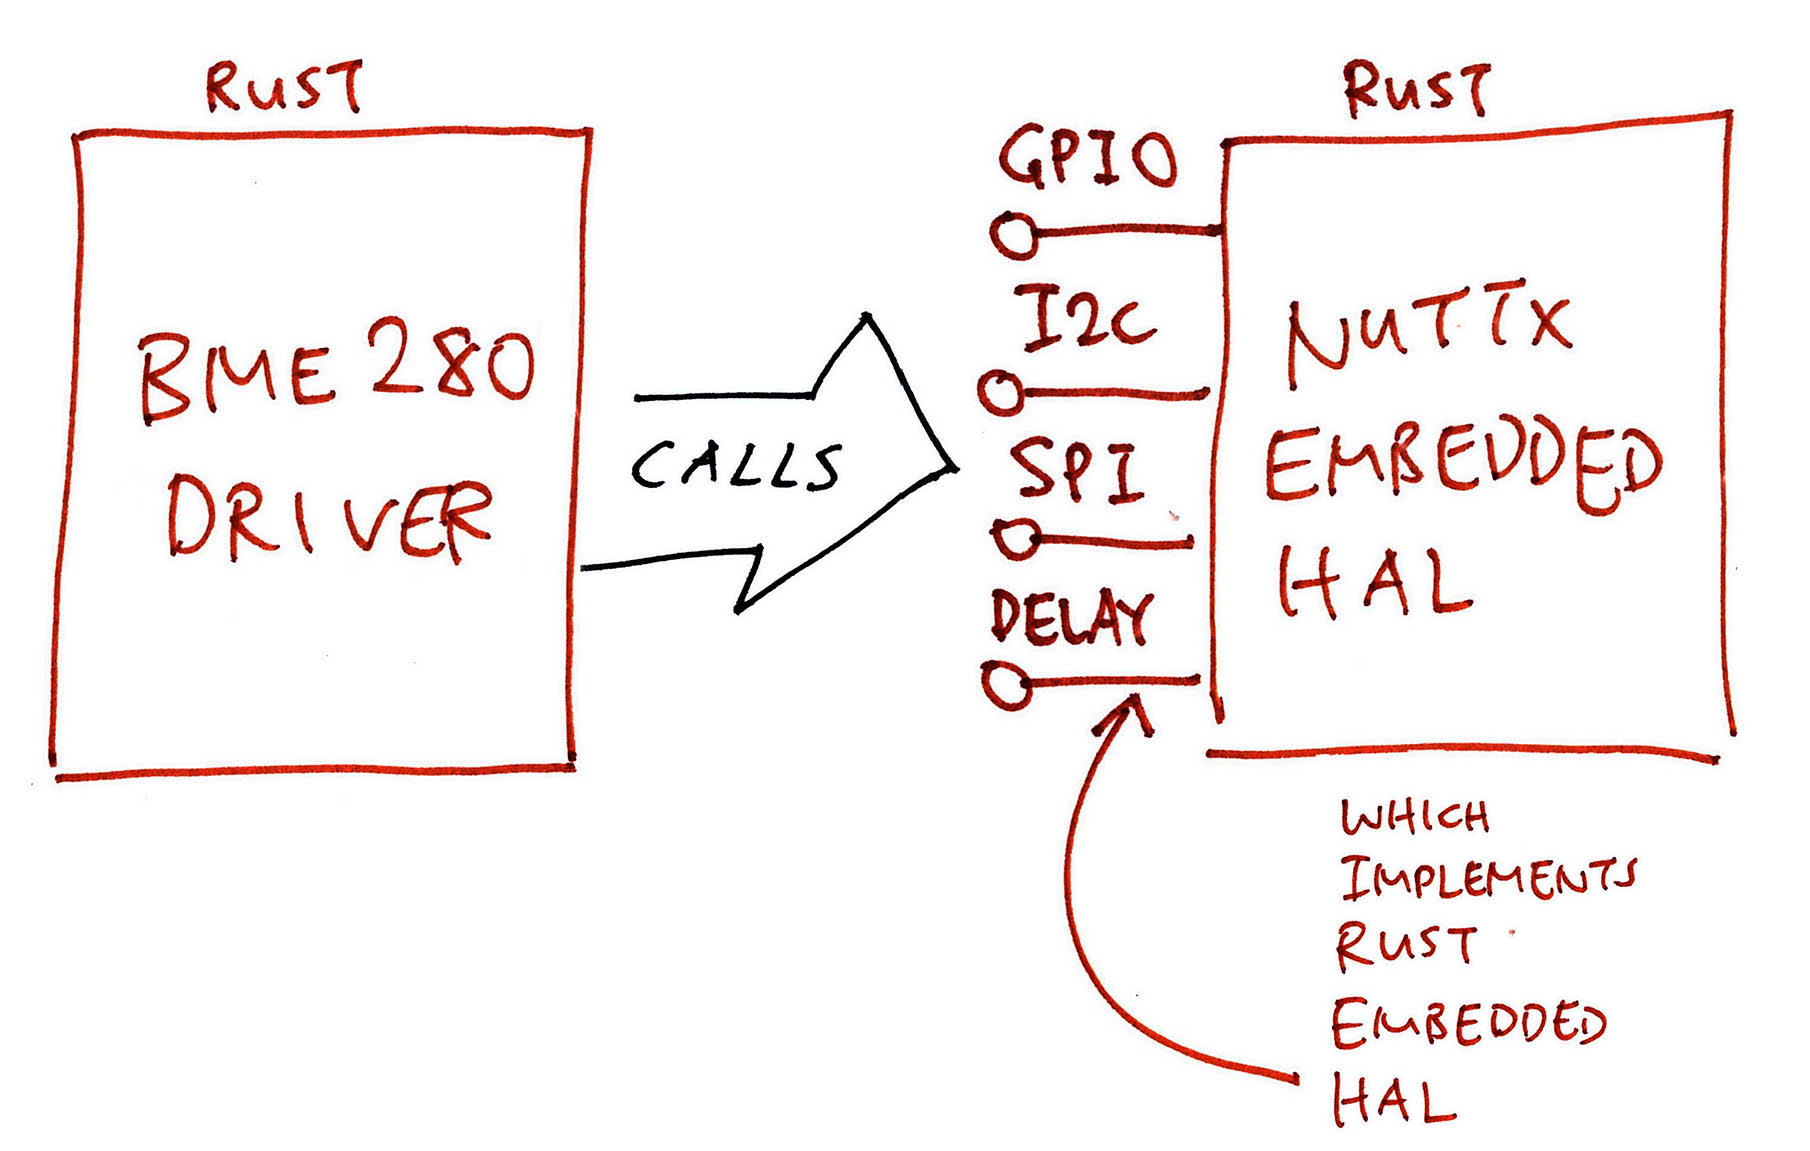 RUST
BME280
DRIVER
CALLS
GPIO
I2C
SPI
DELAY
RUST
NUTTX
EMBEDDED
HAL
WHICH
IMPLEMENTS
RUST
EMBEDDED
HAL